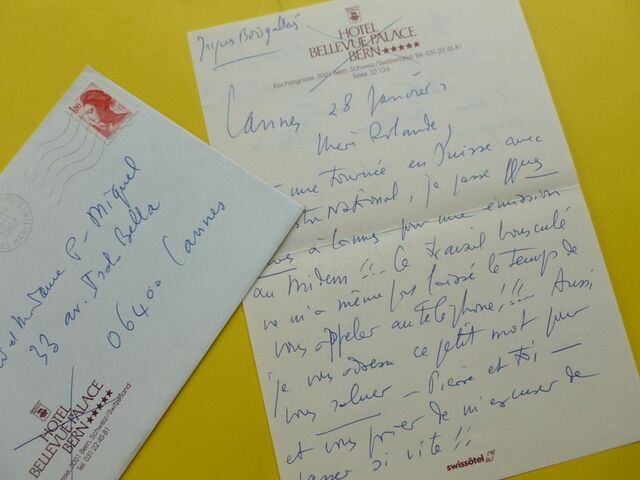 Jacques Bourgallais
HOTEL
BELLEVUE-PALACE
BERN ★★★★★
Kochergasse, 3001 Bern, Schweiz/Switzerland Tel. 031 22 45 81
Telex 32 124
Cannes 28 Janvier,
Rolande,
une tournée en Suisse avec
National, je passe qques
à Cannes pour une émission
au Midem !!! Ce travail bousculé
ne m'a même pas laissé le temps de
vous appeler au téléphone !!! Aussi
je vous adresse ce petit mot pour
vous saluer — Pierre et toi —
et vous prier de m'excuser de
passer si vite !!
swissôtel
1,80
Madame P. Miguel
33 av. Isola Bella
06400 Cannes
HOTEL
BELLEVUE-PALACE
BERN ★★★★★
3001 Bern, Schweiz/Switzerland
Tel. 031 22 45 81